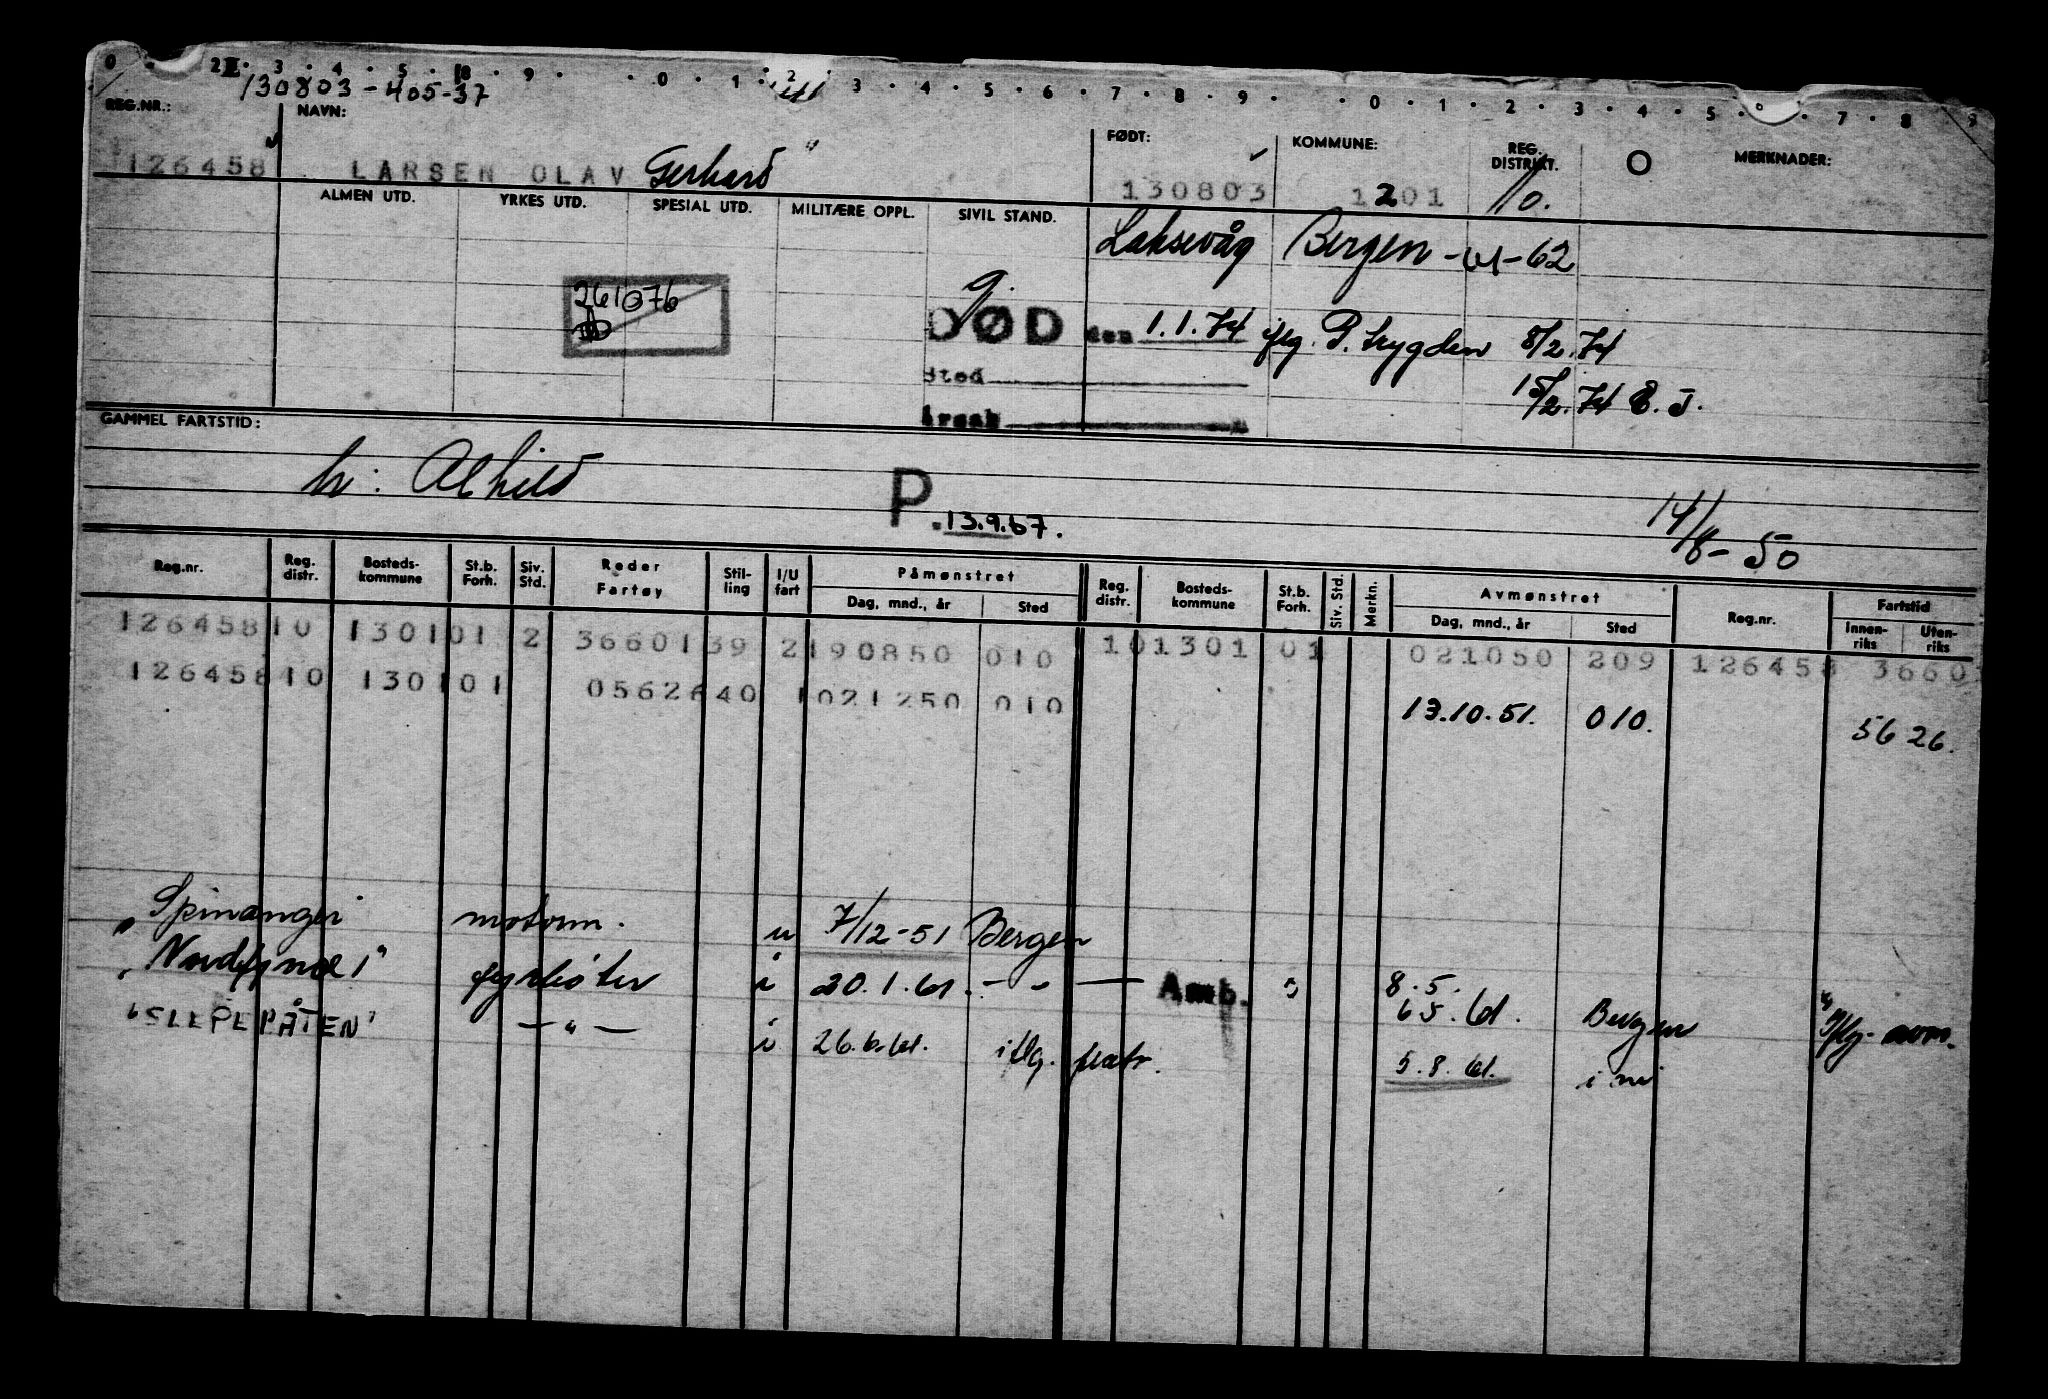 0 2 3 4 5 8 9 0 1 2 3 4 5 6 7 8 9 0 1 2 3 4 5 6 7 8 9
130803-405-37
REG.NR.: NAVN: FØDT: KOMMUNE: REG. DISTRIKT. O MERKNADER:
126458 LARSEN OLAV Gerhard 130803 1201 10.
ALMEN UTD. YRKES UTD. SPESIAL UTD. MILITÆRE OPPL. SIVIL STAND.
Laksevåg Bergen -61-62
261076 g.
DØD den 1.1.74 iflg. P. trygden 8/2.74
Sted
15/2.74 E.J.
Årsak
GAMMEL FARTSTID:
h: Alhild
P.13.9.67.
14/8-50
Reg.nr. Reg. distr. Bosteds-kommune St.b. Forh. Siv. Std. Reder Fartøy Stil-ling I/U fart Påmønstret Dag, mnd., år Sted Reg. distr. Bosteds-kommune St.b. Forh. Siv. Std. Merkn. Avmønstret Dag, mnd., år Sted Reg.nr. Fartstid Innen-riks Uten-riks
126458 10 1301 01 2 36601 39 2 190850 010 10 1301 01 021050 209 126458 3660
126458 10 1301 01 05626 40 1 021250 010 13.10.51. 010. 5626.
"Spinanger" motorm. u 7/12-51 Bergen
"Nordfynel" fyrbøter i 20.1.61. - " - Amb. 3 8.5. 65.61. Bergen iflg. avm.
"SLEPEBÅTEN" -"- i 26.6.61. iflg. 5.8.61.